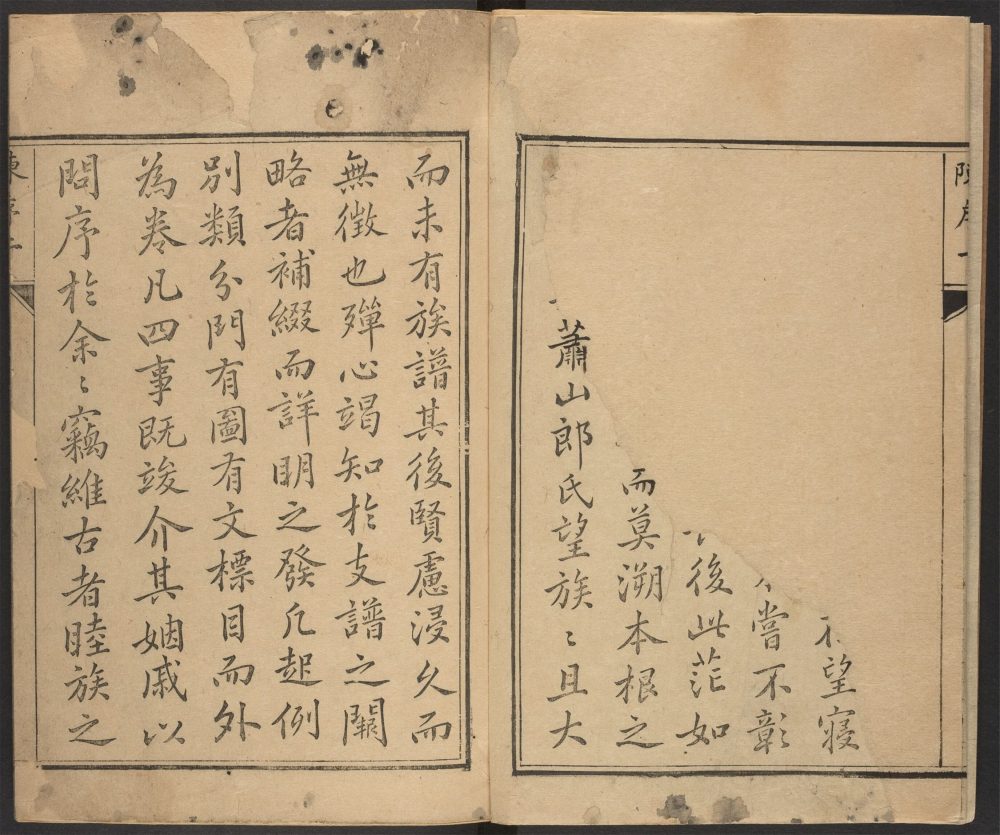 望寢
嘗不彰
後此茫如
而莫溯本根之
蕭山郎氏望族〻且大
而未有族譜其後賢慮浸久而
無徵也殫心竭知於支譜之闕
略者補綴而詳明之發凡起例
別類分門有圖有文標目而外
為卷凡四事既竣介其姻戚以
問序於余〻竊維古者睦族之